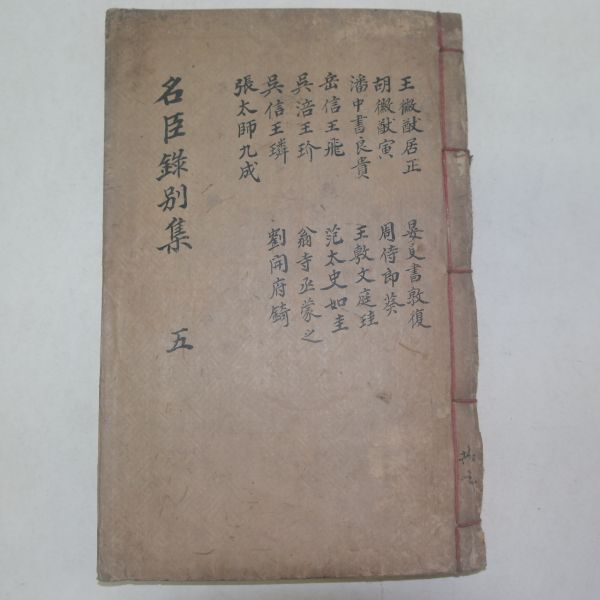 王徽猷居正 晏吏書敦復
胡徽猷寅 周侍郎葵
潘中書良貴 王敷文庭珪
岳信王飛 范太史如圭
吳涪王玠 翁寺丞蒙之
吳信王璘 劉開府錡
張太師九成
名臣錄別集 五